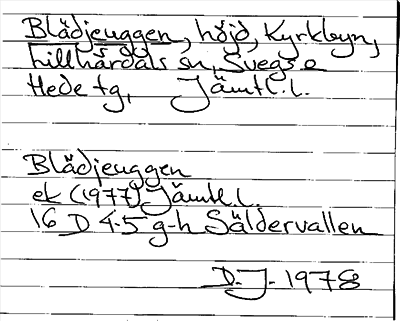 Blädjeuggen, höjd, Kyrkbyn,
Lillhärdals sn, Svegs o
Hede tg, Jämtl.l.
Blädjeuggen
ek (1977) Jämtl.l.
16 D 4-5 g-h Säldervallen
D.J. 1978